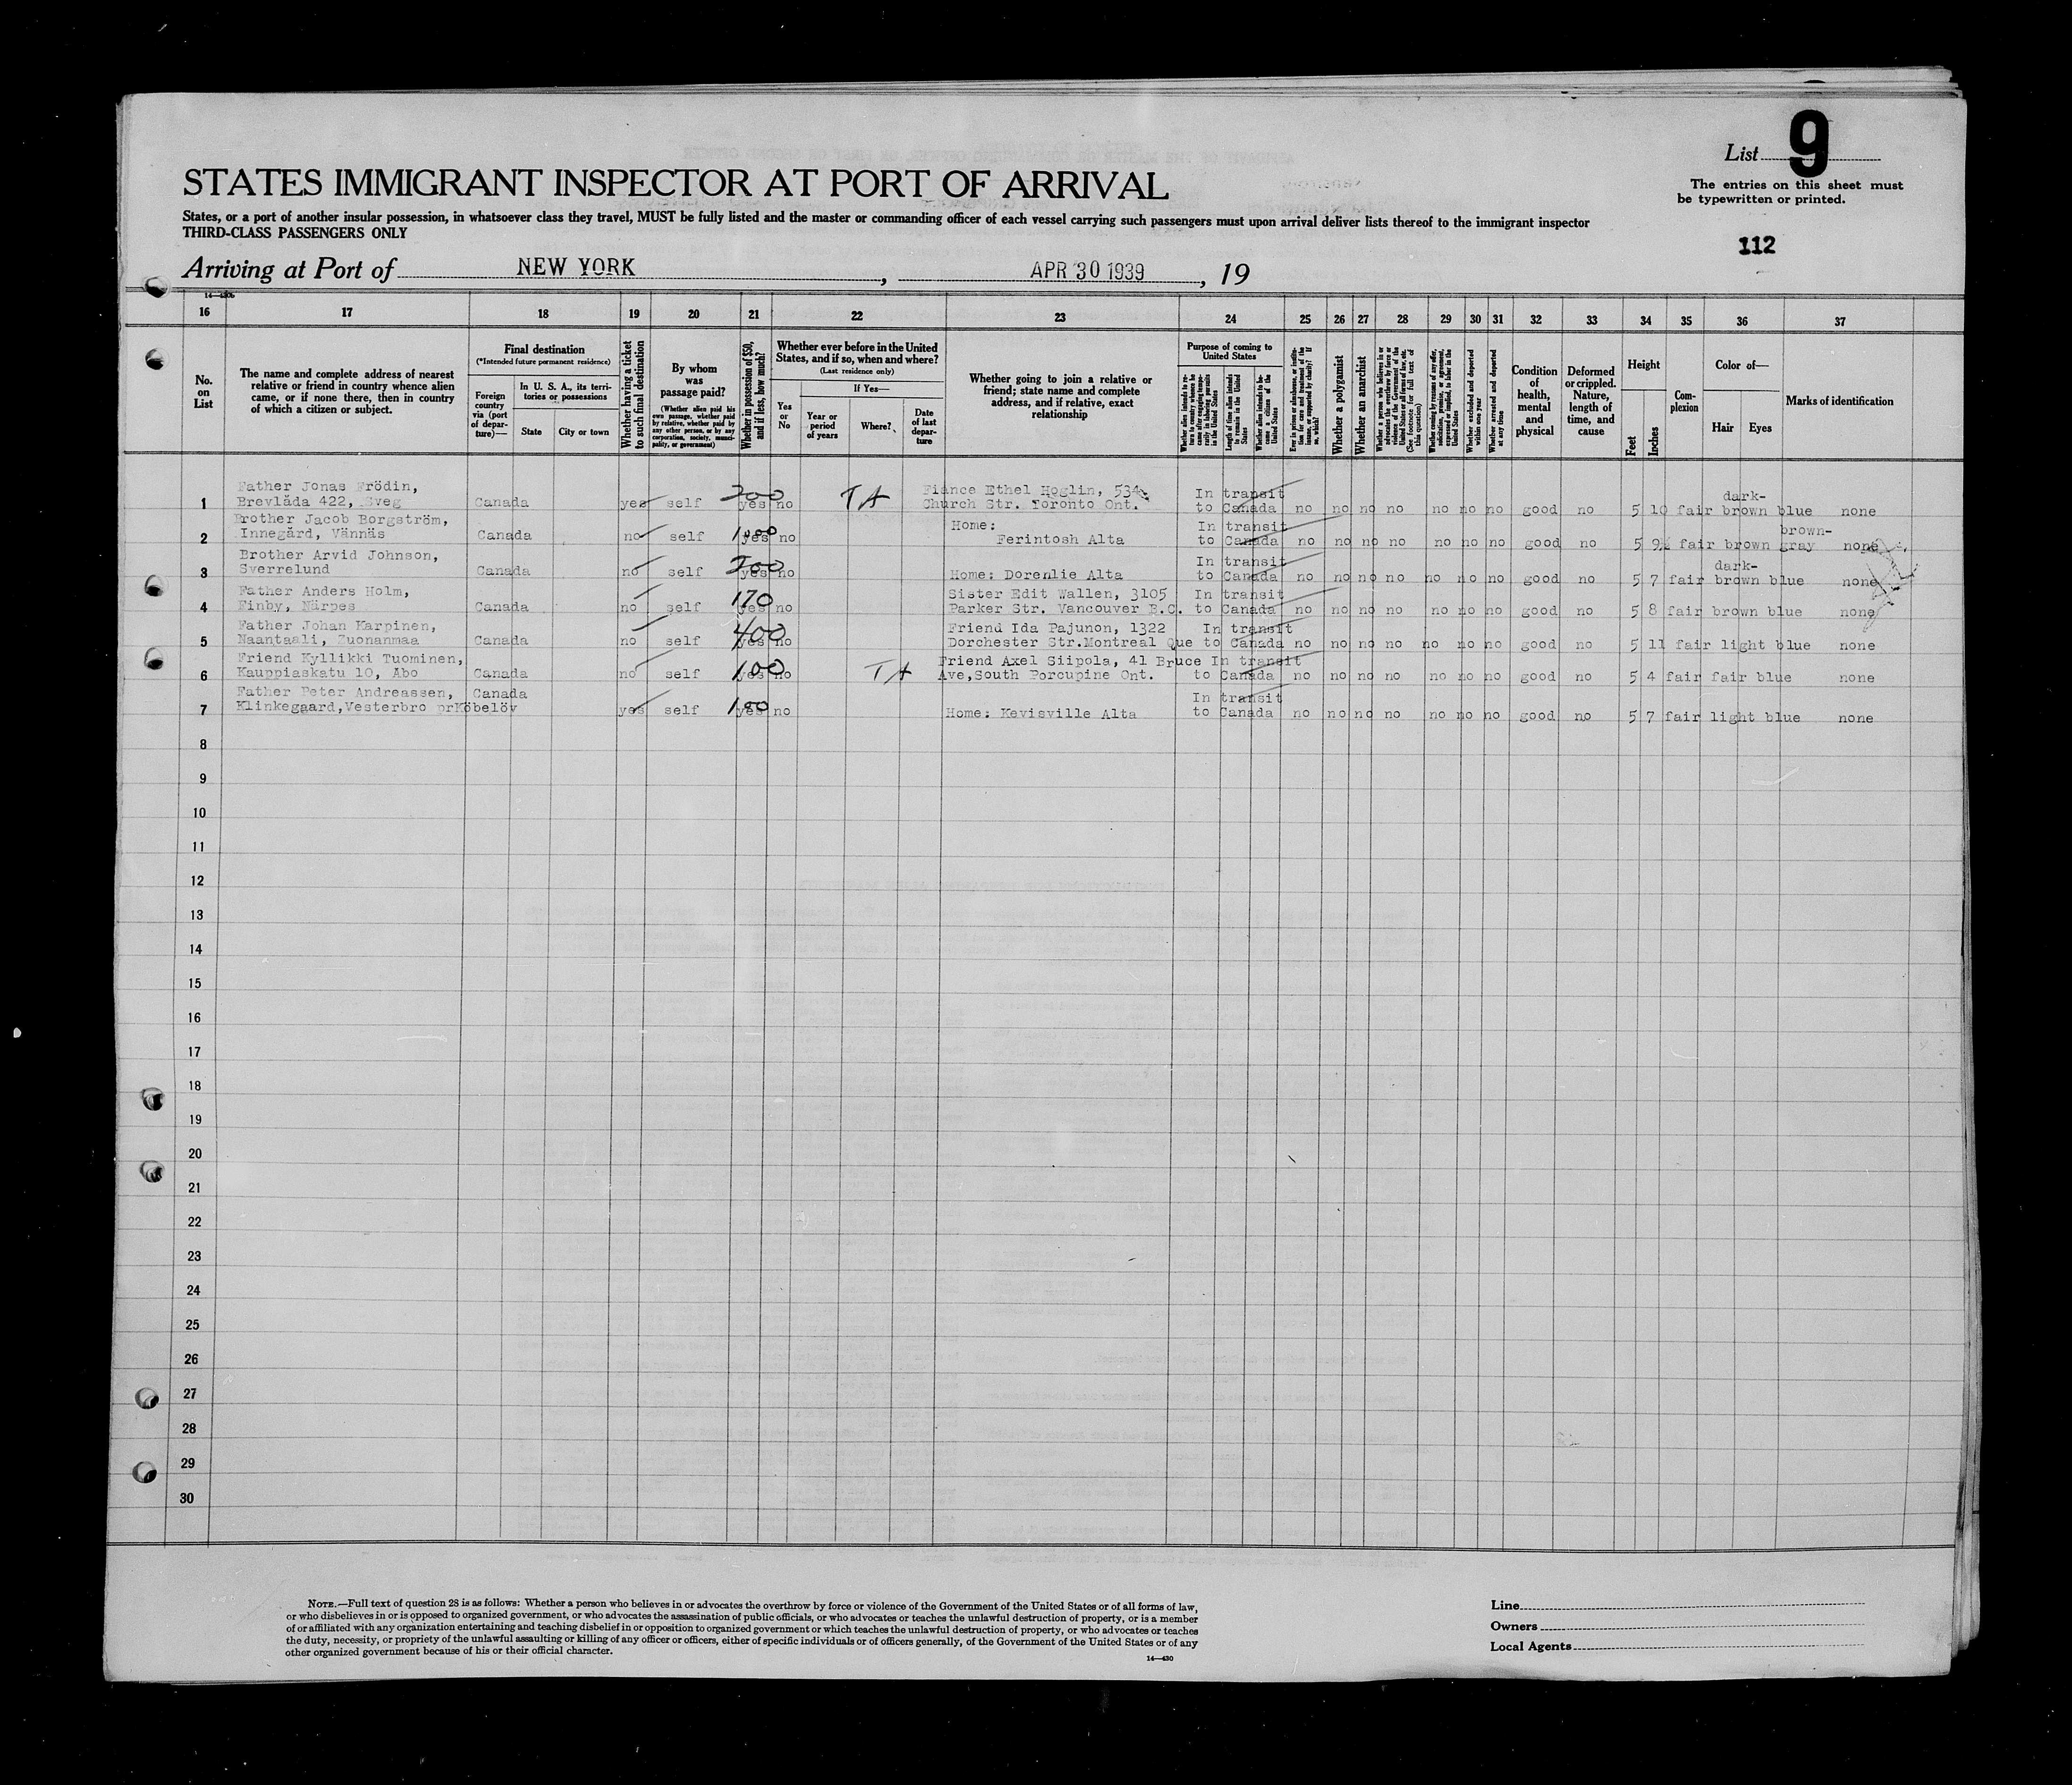 List 9
The entries on this sheet must
be typewritten or printed.
STATES IMMIGRANT INSPECTOR AT PORT OF ARRIVAL
States, or a port of another insular possession, in whatsoever class they travel, MUST be fully listed and the master or commanding officer of each vessel carrying such passengers must upon arrival deliver lists thereof to the immigrant inspector
THIRD-CLASS PASSENGERS ONLY
112
Arriving at Port of NEW YORK, APR 30 1939, 19
14—430b
16 17 18 19 20 21 22 23 24 25 26 27 28 29 30 31 32 33 34 35 36 37
No. on List
The name and complete address of nearest
relative or friend in country whence alien
came, or if none there, then in country
of which a citizen or subject.
Final destination
(*Intended future permanent residence)
Foreign country via (port of departure)—
In U. S. A., its territories or possessions
State
City or town
Whether having a ticket to such final destination
By whom was passage paid?
(Whether alien paid his own passage, whether paid by relative, whether paid by any other person, or by any corporation, society, municipality, or government)
Whether in possession of $50, and if less, how much?
Whether ever before in the United
States, and if so, when and where?
(Last residence only)
Yes or No
If Yes—
Year or period of years
Where?
Date of last departure
Whether going to join a relative or
friend; state name and complete
address, and if relative, exact
relationship
Purpose of coming to
United States
Length of time alien intends to remain in the United States
Whether alien intends to become a citizen of the United States
Whether a polygamist
Whether an anarchist
(See footnote for full text of this question)
Whether excluded and deported within one year
Whether arrested and deported at any time
Condition of health, mental and physical
Deformed or crippled. Nature, length of time, and cause
Height
Feet
Inches
Complexion
Color of—
Hair Eyes
Marks of identification
Father Jonas Frödin, 200 Fiance Ethel Hoglin, 534 In transit dark-
1 Brevlåda 422, Sveg Canada yes self yes no TA Church Str. Toronto Ont. to Canada no no no no no no no good no 5 10 fair brown blue none
Brother Jacob Borgström, Home: In transit brown-
2 Innegård, Vännäs Canada no self 100 yes no Ferintosh Alta to Canada no no no no no no no good no 5 9½ fair brown gray none
Brother Arvid Johnson, 200 In transit dark-
3 Sverrelund Canada no self yes no Home: Dorenlie Alta to Canada no no no no no no no good no 5 7 fair brown blue none
Father Anders Holm, 170 Sister Edit Wallen, 3105 In transit
4 Finby, Närpes Canada no self yes no Parker Str. Vancouver B.C. to Canada no no no no no no no good no 5 8 fair brown blue none
Father Johan Karpinen, 400 Friend Ida Pajunon, 1322 In transit
5 Naantaali, Zuonanmaa Canada no self yes no Dorchester Str.Montreal Que to Canada no no no no no no no good no 5 11 fair light blue none
Friend Kyllikki Tuominen, 100 Friend Axel Siipola, 41 Bruce In transit
6 Kauppiaskatu 10, Abo Canada no self yes no TA Ave,South Porcupine Ont. to Canada no no no no no no no good no 5 4 fair fair blue none
Father Peter Andreassen, Canada In transit
7 Klinkegaard,Vesterbro prKöbelöv yes self 100 yes no Home: Kevisville Alta to Canada no no no no no no no good no 5 7 fair light blue none
8
9
10
11
12
13
14
15
16
17
18
19
20
21
22
23
24
25
26
27
28
29
30
NOTE.—Full text of question 28 is as follows: Whether a person who believes in or advocates the overthrow by force or violence of the Government of the United States or of all forms of law,
or who disbelieves in or is opposed to organized government, or who advocates the assassination of public officials, or who advocates or teaches the unlawful destruction of property, or is a member
of or affiliated with any organization entertaining and teaching disbelief in or opposition to organized government or which teaches the unlawful destruction of property, or who advocates or teaches
the duty, necessity, or propriety of the unlawful assaulting or killing of any officer or officers, either of specific individuals or of officers generally, of the Government of the United States or of any
other organized government because of his or their official character.
14—430
Line
Owners
Local Agents